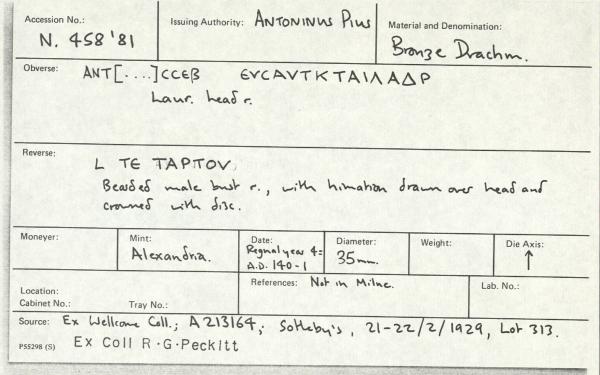 Accession No.: N. 458 '81
Issuing Authority: ANTONINUS PIUS
Material and Denomination: Bronze Drachm.
Obverse: ANT[....]CCEB ЄVCAVTKTAIΛAΔP
Laur. head r.
Reverse:
L TE TAPTOV
Bearded male bust r., with himation drawn over head and
crowned with disc.
Moneyer:
Mint: Alexandria.
Date: Regnal year 4 =
A.D. 140-1
Diameter: 35mm.
Weight:
Die Axis: ↑
Location:
Cabinet No.: Tray No.:
References: Not in Milne.
Lab. No.:
Source: Ex Wellcome Coll.; A213164; Sotheby's, 21-22/2/1929, Lot 313.
PS5298 (S) Ex Coll R.G.Peckitt